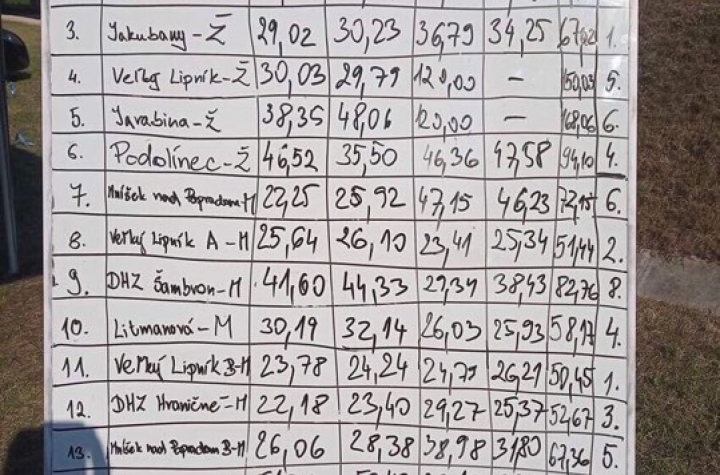 3. Jakubany - Ž 29,02 30,23 36,79 34,25 67,02 1.
4. Veľký Lipník - Ž 30,03 29,79 120,00 - 150,03 5.
5. Jarabina - Ž 38,35 48,06 120,00 - 168,06 6.
6. Podolínec - Ž 46,52 35,50 46,36 47,58 94,10 4.
7. Mníšek nad Popradom - M 22,25 25,92 47,15 46,23 72,15 6.
8. Veľký Lipník A - M 25,64 26,10 23,41 25,34 51,44 2.
9. DHZ Šambron - M 41,60 44,33 27,34 38,43 82,76 8.
10. Litmanová - M 30,19 32,14 26,03 25,93 58,17 4.
11. Veľký Lipník B - M 23,78 24,24 24,79 26,21 50,45 1.
12. DHZ Hraničné - M 22,18 23,40 29,27 25,37 52,67 3.
13. Mníšek nad Popradom B - M 26,06 28,38 38,98 31,80 67,36 5.